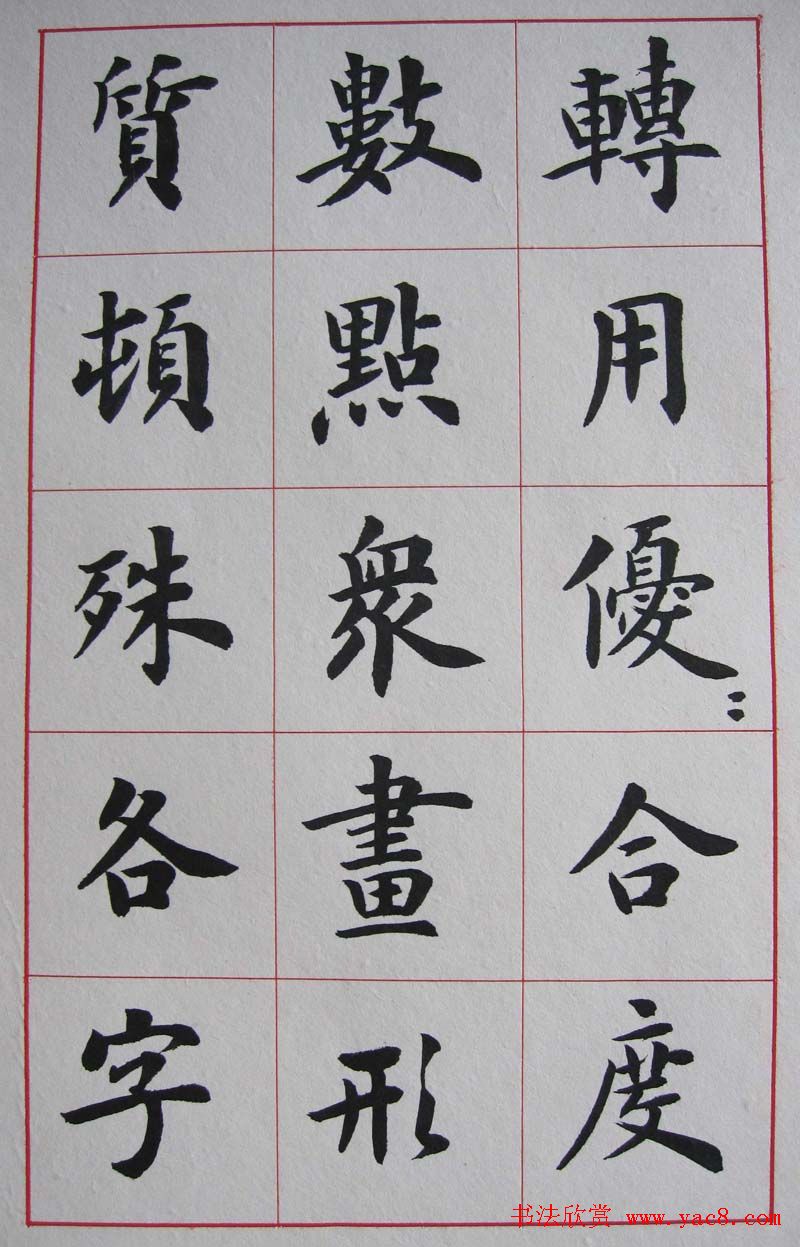 轉用優〻合度
數點眾畫形
質頓殊各字
书法欣赏 www.yac8.com